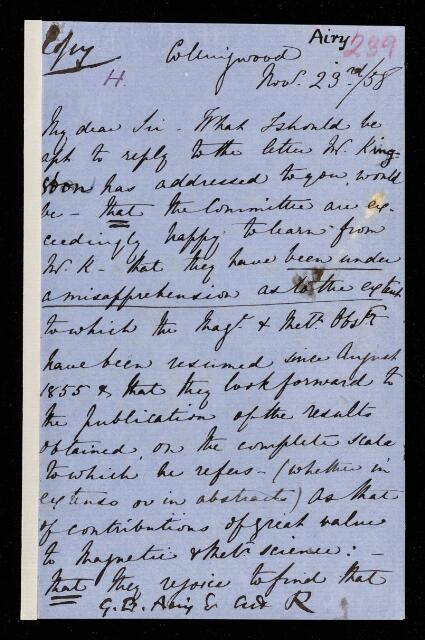 Copy
Airy 239
H.
Collingwood
Nov. 23rd/58
My dear Sir - What I should be
apt to reply to the letter Mr. King-
ston has addressed to you would
be - that the Committee are ex-
ceedingly happy to learn from
Mr. K - that they have been under
a misapprehension as to the extent
to which the Magc. & Metl. Obsns
have been resumed since August
1855 & that they look forward to
the publication of the results
obtained, on the complete scale
to which he refers - (whether in
extenso or in abstracts) as that
of contributions of great value
to Magnetic & Metl. science: -
that they rejoice to find that
G.B. Airy E